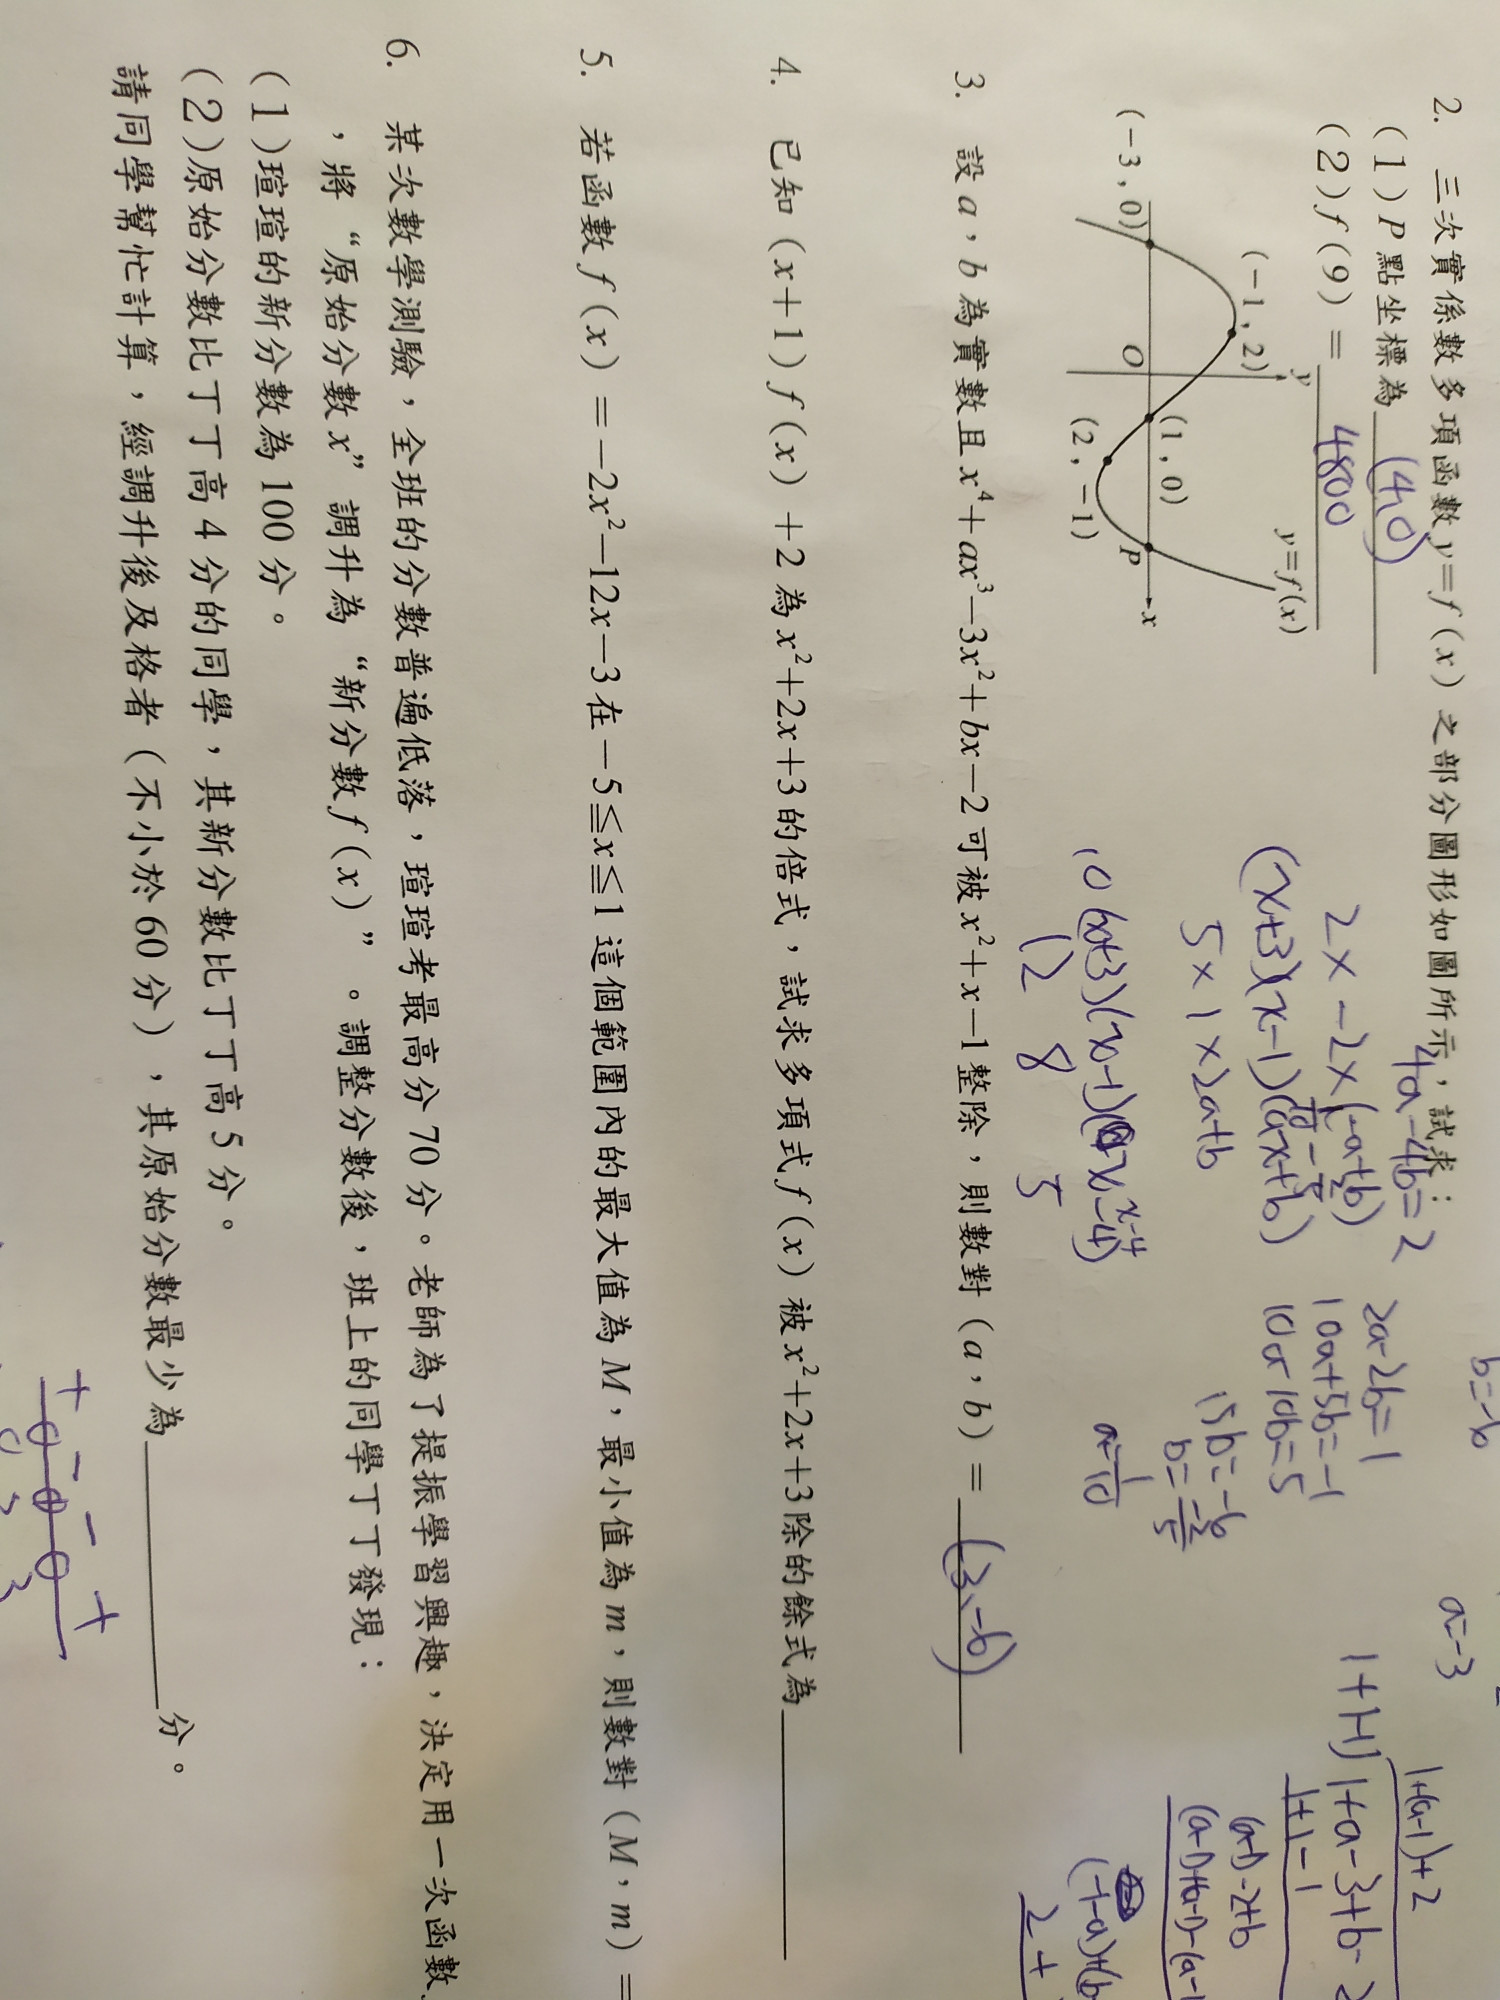 2. 三次實係數多項函數y=f(x)之部分圖形如圖所示，試求：
(1)P點坐標為 (4,0)
(2)f(9)= 4800
(-3,0)
(-1,2)
O
y
(1,0)
(2,-1)
P
x
y=f(x)
4a-4b=2
2×-2×(-a+b)
(x+3)(x-1)(ax+b)
5×1×2a+b
12 8 5
2a-2b=1
10a+5b=-1
10a-10b=5
15b=-6
a=1/10
a=-3
1+1-1)1+a-3+b-2
1+(a-1)+2
1+1-1
(a-1)-2+b
3. 設a，b為實數且x⁴+ax³-3x²+bx-2可被x²+x-1整除，則數對(a，b)= (3,-6)
4. 已知(x+1)f(x)+2為x²+2x+3的倍式，試求多項式f(x)被x²+2x+3除的餘式為
5. 若函數f(x)=-2x²-12x-3在-5≦x≦1這個範圍內的最大值為M，最小值為m，則數對(M，m)=
6. 某次數學測驗，全班的分數普遍低落，瑄瑄考最高分70分。老師為了提振學習興趣，決定用一次函數
，將“原始分數x”調升為“新分數f(x)”。調整分數後，班上的同學丁丁發現：
(1)瑄瑄的新分數為100分。
(2)原始分數比丁丁高4分的同學，其新分數比丁丁高5分。
請同學幫忙計算，經調升後及格者(不小於60分)，其原始分數最少為 分。
+ - - +